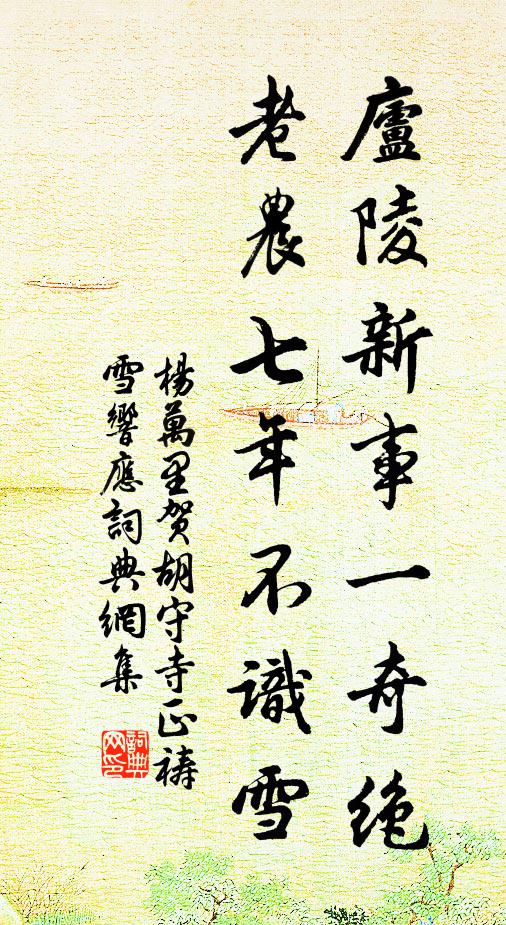 廬陵新事一奇絕
老農七年不識雪
楊萬里賀胡守寺正禱
雪響應詞典網集
詞典
网印